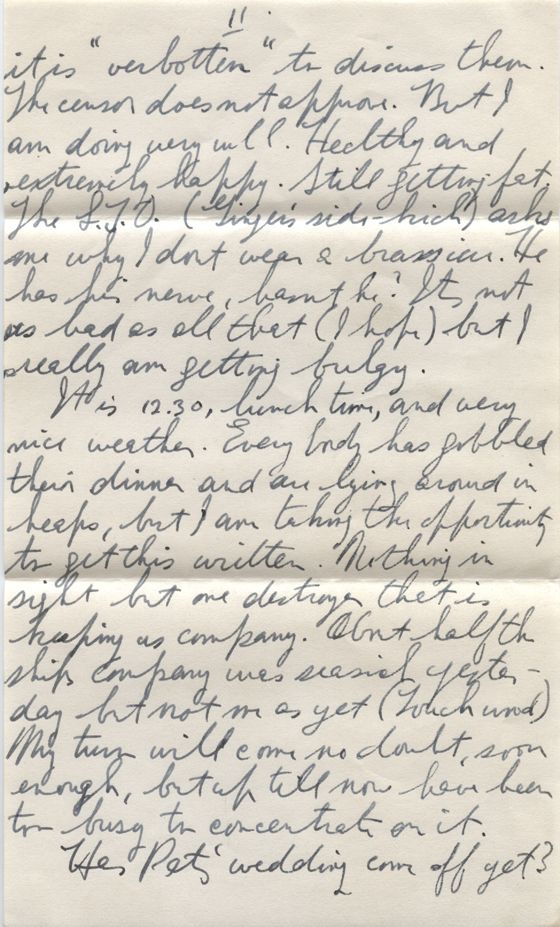 11.
it is "verbotten" to discuss them.
The censor does not approve. But I
am doing very well. Healthy and
extremely happy. Still getting fat.
The S.T.O. (Ginger's side-kick) asks
me why I dont wear a brassier. He
has his nerve, hasnt he? Its not
as bad as all that (I hope) but I
really am getting bulgy.
It is 12.30, lunch time, and very
nice weather. Every body has gobbled
their dinner and are lying around in
heaps, but I am taking the opportunity
to get this written. Nothing in
sight but one destroyer that is
keeping us company. About half the
ships company was seasick yester-
day but not me as yet (touch wood)
My turn will come no doubt, soon
enough, but up till now have been
too busy to concentrate on it.
Has Pats' wedding come off yet?